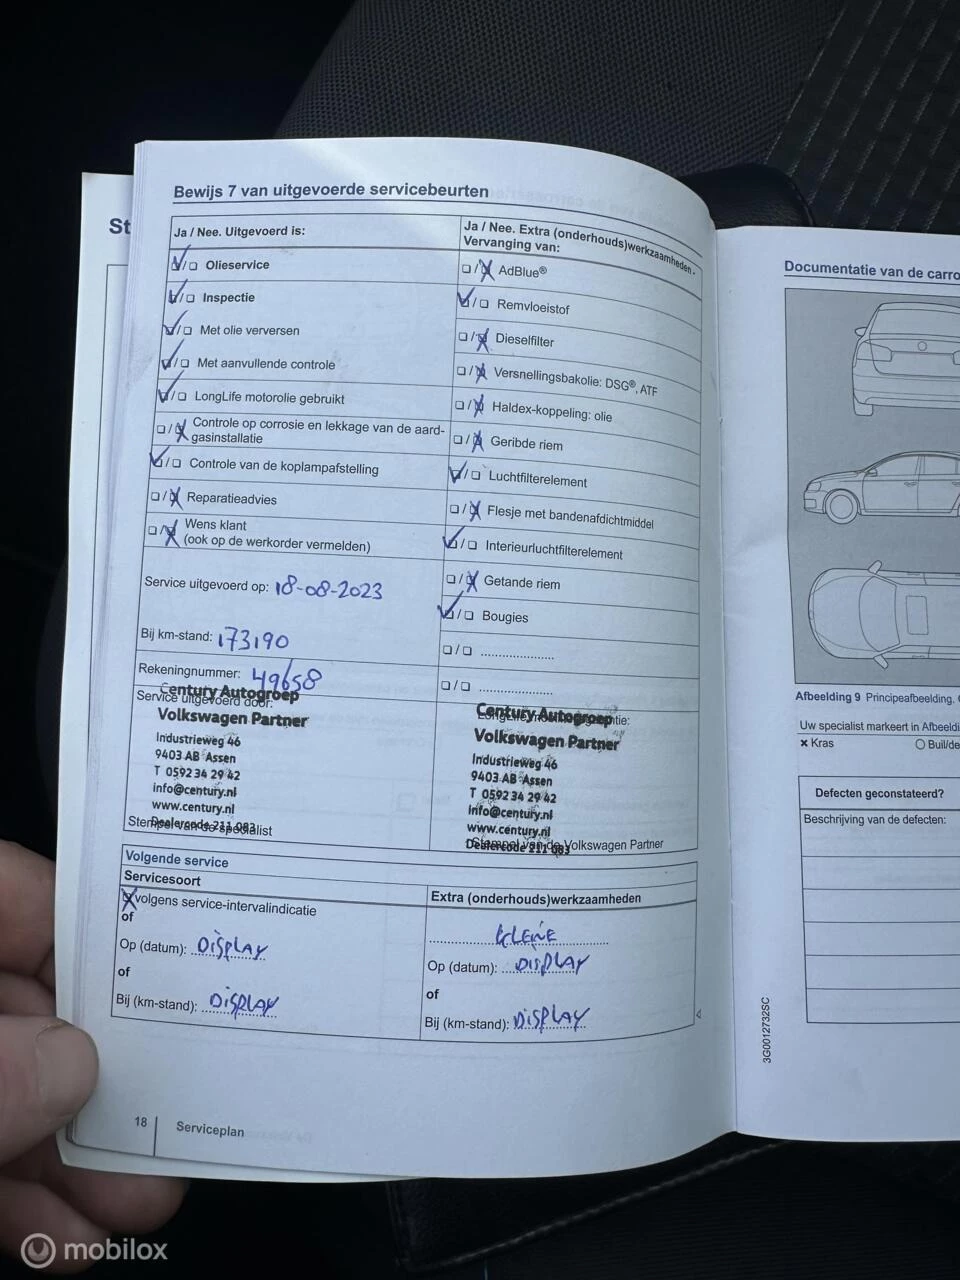 Bewijs 7 van uitgevoerde servicebeurten
Ja / Nee. Uitgevoerd is:
Olieservice
Inspectie
Met olie verversen
Met aanvullende controle
LongLife motorolie gebruikt
Controle op corrosie en lekkage van de aard-
gasinstallatie
Controle van de koplampafstelling
Reparatieadvies
Wens klant
(ook op de werkorder vermelden)
Service uitgevoerd op: 18-08-2023
Bij km-stand: 173190
Rekeningnummer: 49658
Service uitgevoerd door:
Century Autogroep
Volkswagen Partner
Industrieweg 46
9403 AB Assen
T 0592 34 29 42
info@century.nl
www.century.nl
Dealercode 211 083
Stempel van de specialist
Ja / Nee. Extra (onderhouds)werkzaamheden -
Vervanging van:
AdBlue®
Remvloeistof
Dieselfilter
Versnellingsbakolie: DSG®, ATF
Haldex-koppeling: olie
Geribde riem
Luchtfilterelement
Flesje met bandenafdichtmiddel
Interieurluchtfilterelement
Getande riem
Bougies
Century Autogroep
Volkswagen Partner
Industrieweg 46
9403 AB Assen
T 0592 34 29 42
info@century.nl
www.century.nl
Dealercode 211 083
Stempel van de Volkswagen Partner
Volgende service
Servicesoort
volgens service-intervalindicatie
of
Op (datum): DISPLAY
of
Bij (km-stand): DISPLAY
Extra (onderhouds)werkzaamheden
KLEINE
Op (datum): DISPLAY
of
Bij (km-stand): DISPLAY
18
Serviceplan
St
Documentatie van de carro
Afbeelding 9 Principeafbeelding,
Uw specialist markeert in Afbeeldi
x Kras
Buil/de
Defecten geconstateerd?
Beschrijving van de defecten:
3G0012732SC
mobilox